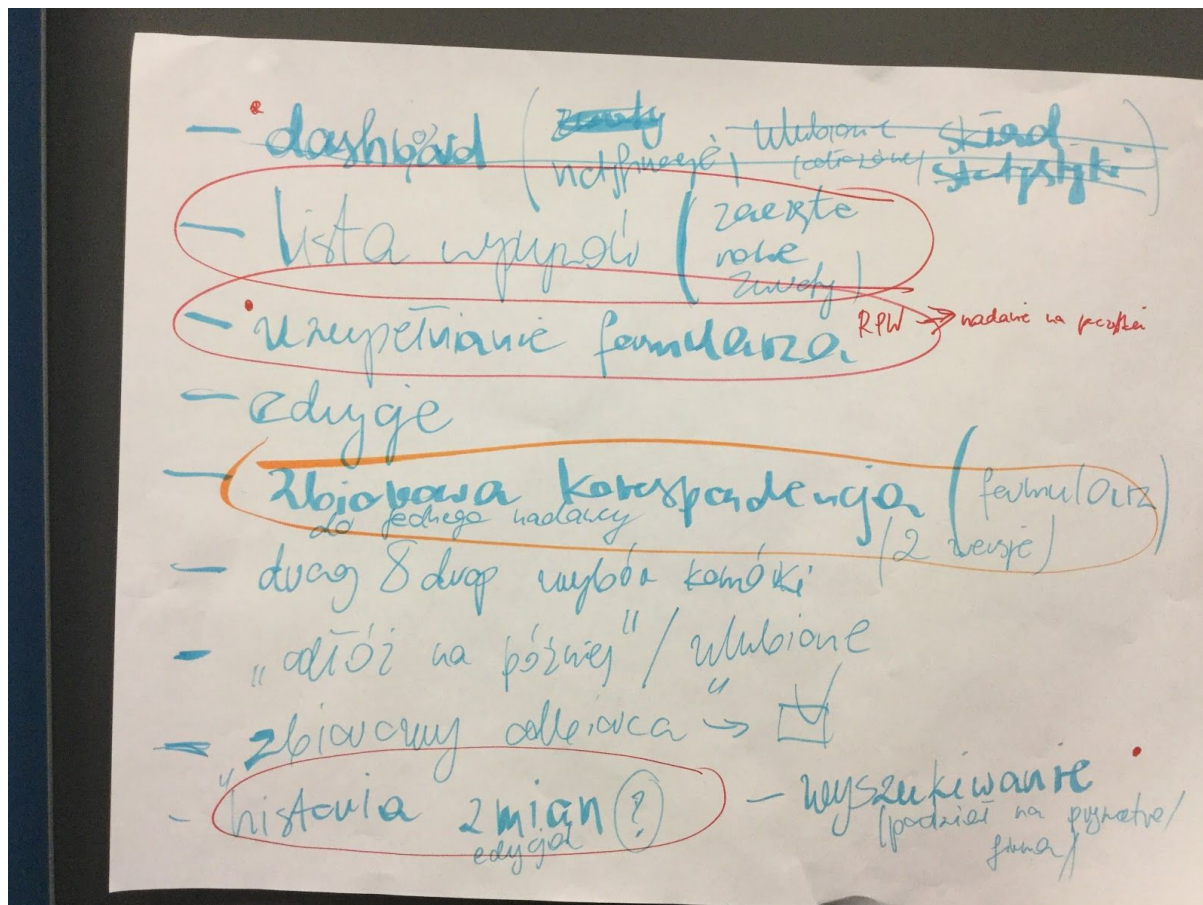 - dashboard ( zwroty ulubione skład
notyfikacje) (odłożone) statystyki )
- lista wysyłek ( zaczęte
nowe
zwroty )
- uzupełnianie formularza RPW → nadanie na początku
- edycje
- zbiorowa korespondencja ( formularz )
do jednego nadawcy (2 wersje)
- drag & drop wybór komórki
- "odłóż na później" / ulubione
- "zbiorowy odbiorca" →
- historia zmian (?) - wyszukiwanie
edycja (podział na prywatne/
firma)